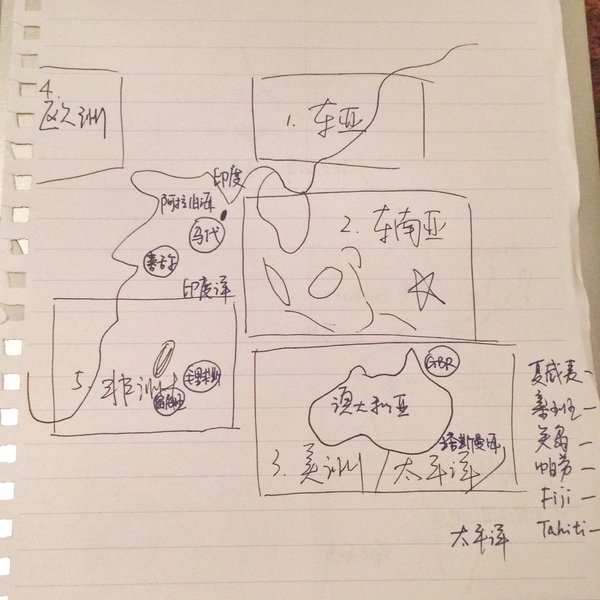 4.
欧洲
1. 东亚
印度
阿拉伯海
马代
2. 东南亚
塞舌尔
印度洋
5. 非洲
毛里求斯
GBR
澳大利亚
塔斯曼海
3. 美洲/太平洋
夏威夷-
塞班-
关岛-
帕劳-
Fiji-
Tahiti-
太平洋